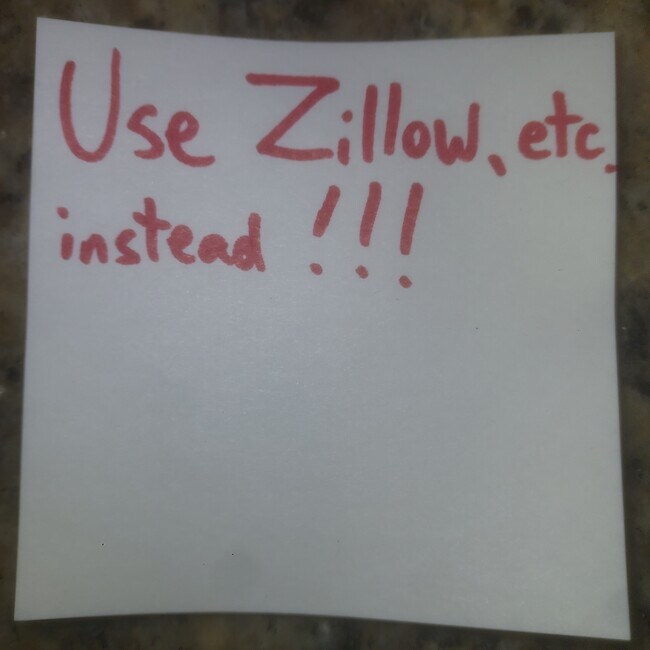 Use Zillow, etc.
instead !!!